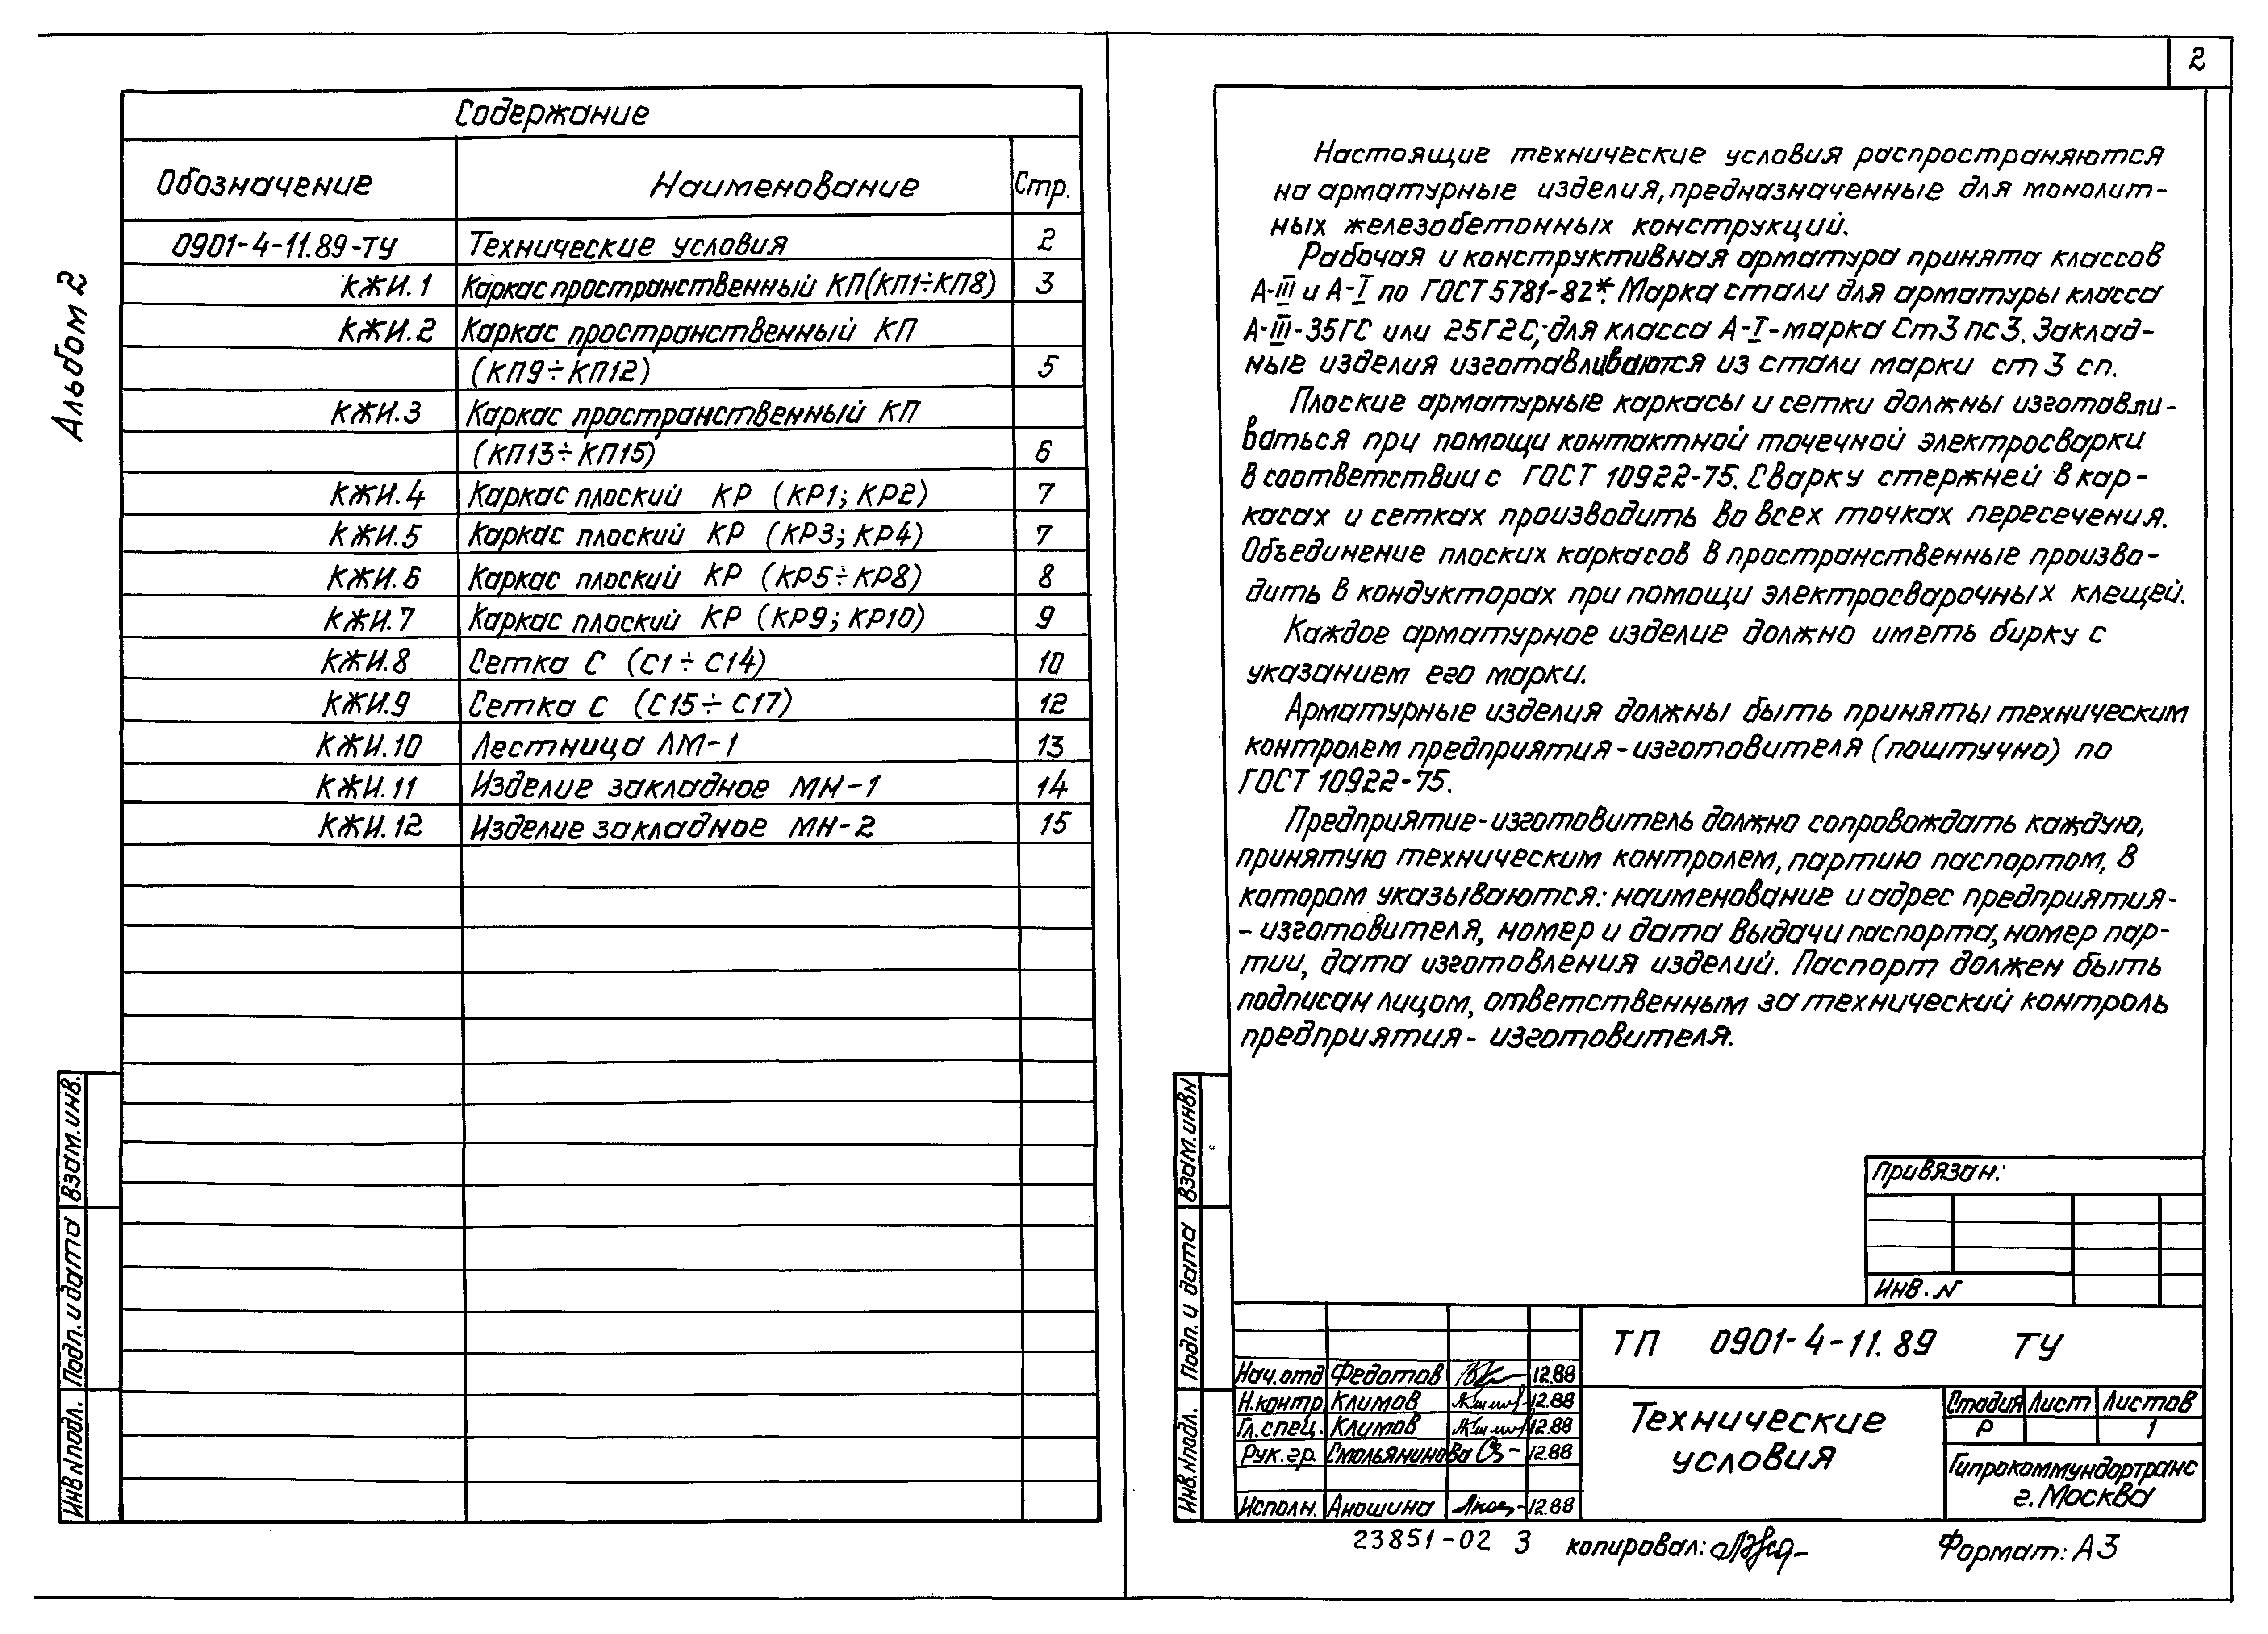 Альбом 2
Содержание
Обозначение Наименование Стр.
0901-4-11.89-ТУ Технические условия 2
КЖИ.1 Каркас пространственный КП(КП1÷КП8) 3
КЖИ.2 Каркас пространственный КП
(КП9÷КП12) 5
КЖИ.3 Каркас пространственный КП
(КП13÷КП15) 6
КЖИ.4 Каркас плоский КР (КР1; КР2) 7
КЖИ.5 Каркас плоский КР (КР3; КР4) 7
КЖИ.6 Каркас плоский КР (КР5÷КР8) 8
КЖИ.7 Каркас плоский КР (КР9; КР10) 9
КЖИ.8 Сетка С (С1÷С14) 10
КЖИ.9 Сетка С (С15÷С17) 12
КЖИ.10 Лестница ЛМ-1 13
КЖИ.11 Изделие закладное МН-1 14
КЖИ.12 Изделие закладное МН-2 15
Взам.инв.
Подп. и дата
Инв.N подл.
2
Настоящие технические условия распространяются
на арматурные изделия, предназначенные для монолит-
ных железобетонных конструкций.
Рабочая и конструктивная арматура принята классов
А-III и А-I по ГОСТ 5781-82*. Марка стали для арматуры класса
А-III-35ГС или 25Г2С; для класса А-I-марка Ст3пс3. Заклад-
ные изделия изготавливаются из стали марки ст 3 сп.
Плоские арматурные каркасы и сетки должны изготавли-
ваться при помощи контактной точечной электросварки
в соответствии с ГОСТ 10922-75. Сварку стержней в кар-
касах и сетках производить во всех точках пересечения.
Объединение плоских каркасов в пространственные произво-
дить в кондукторах при помощи электросварочных клещей.
Каждое арматурное изделие должно иметь бирку с
указанием его марки.
Арматурные изделия должны быть приняты техническим
контролем предприятия-изготовителя (поштучно) по
ГОСТ 10922-75.
Предприятие-изготовитель должно сопровождать каждую,
принятую техническим контролем, партию паспортом, в
котором указываются: наименование и адрес предприятия-
-изготовителя, номер и дата выдачи паспорта, номер пар-
тии, дата изготовления изделий. Паспорт должен быть
подписан лицом, ответственным за технический контроль
предприятия- изготовителя.
Взам.инв.N
Подп. и дата
Инв.N подл.
Привязан:
Инв. N
ТП 0901-4-11.89 ТУ
Нач.отд Федотов 12.88
Н.контр. Климов 12.88
Гл.спец. Климов 12.88
Рук.гр. Смольянинова 12.88
Исполн. Аношина 12.88
Технические
условия
Стадия Лист Листов
Р 1
Гипрокоммундортранс
г.Москва
23851-02 3 копировал: Формат: А3